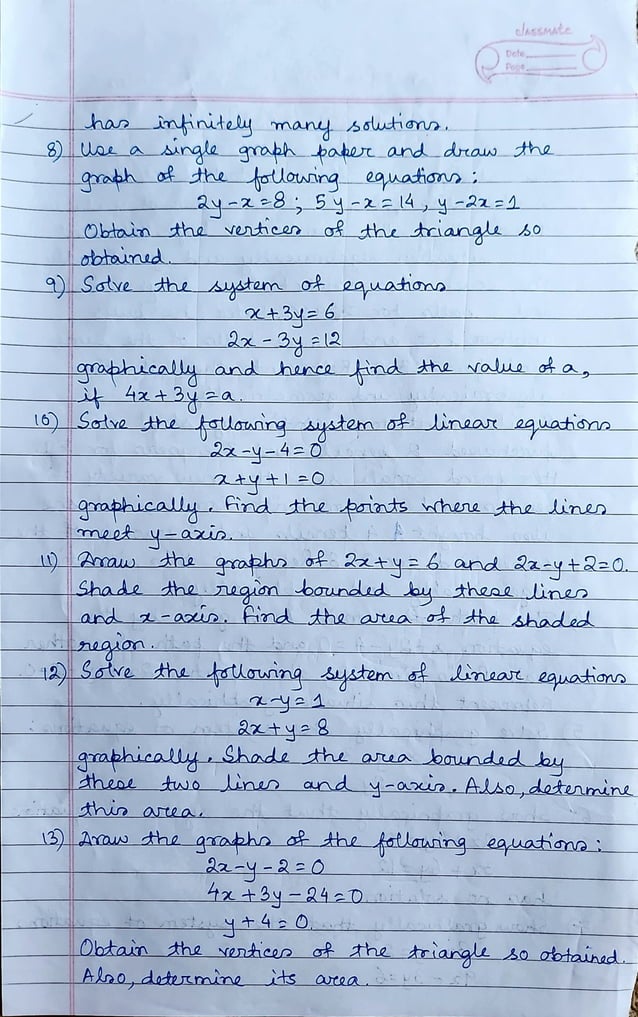 classmate
Date
Page
has infinitely many solutions.
8) Use a single graph paper and draw the
graph of the following equations:
2y-x=8; 5y-x=14, y-2x=1
Obtain the vertices of the triangle so
obtained.
9) Solve the system of equations
x+3y=6
2x-3y=12
graphically and hence find the value of a,
if 4x+3y=a.
10) Solve the following system of linear equations
2x-y-4=0
x+y+1=0
graphically. Find the points where the lines
meet y-axis.
11) Draw the graphs of 2x+y=6 and 2x-y+2=0.
Shade the region bounded by these lines
and x-axis. Find the area of the shaded
region.
12) Solve the following system of linear equations
x-y=1
2x+y=8
graphically. Shade the area bounded by
these two lines and y-axis. Also, determine
this area.
13) Draw the graphs of the following equations:
2x-y-2=0
4x+3y-24=0
y+4=0
Obtain the vertices of the triangle so obtained.
Also, determine its area.